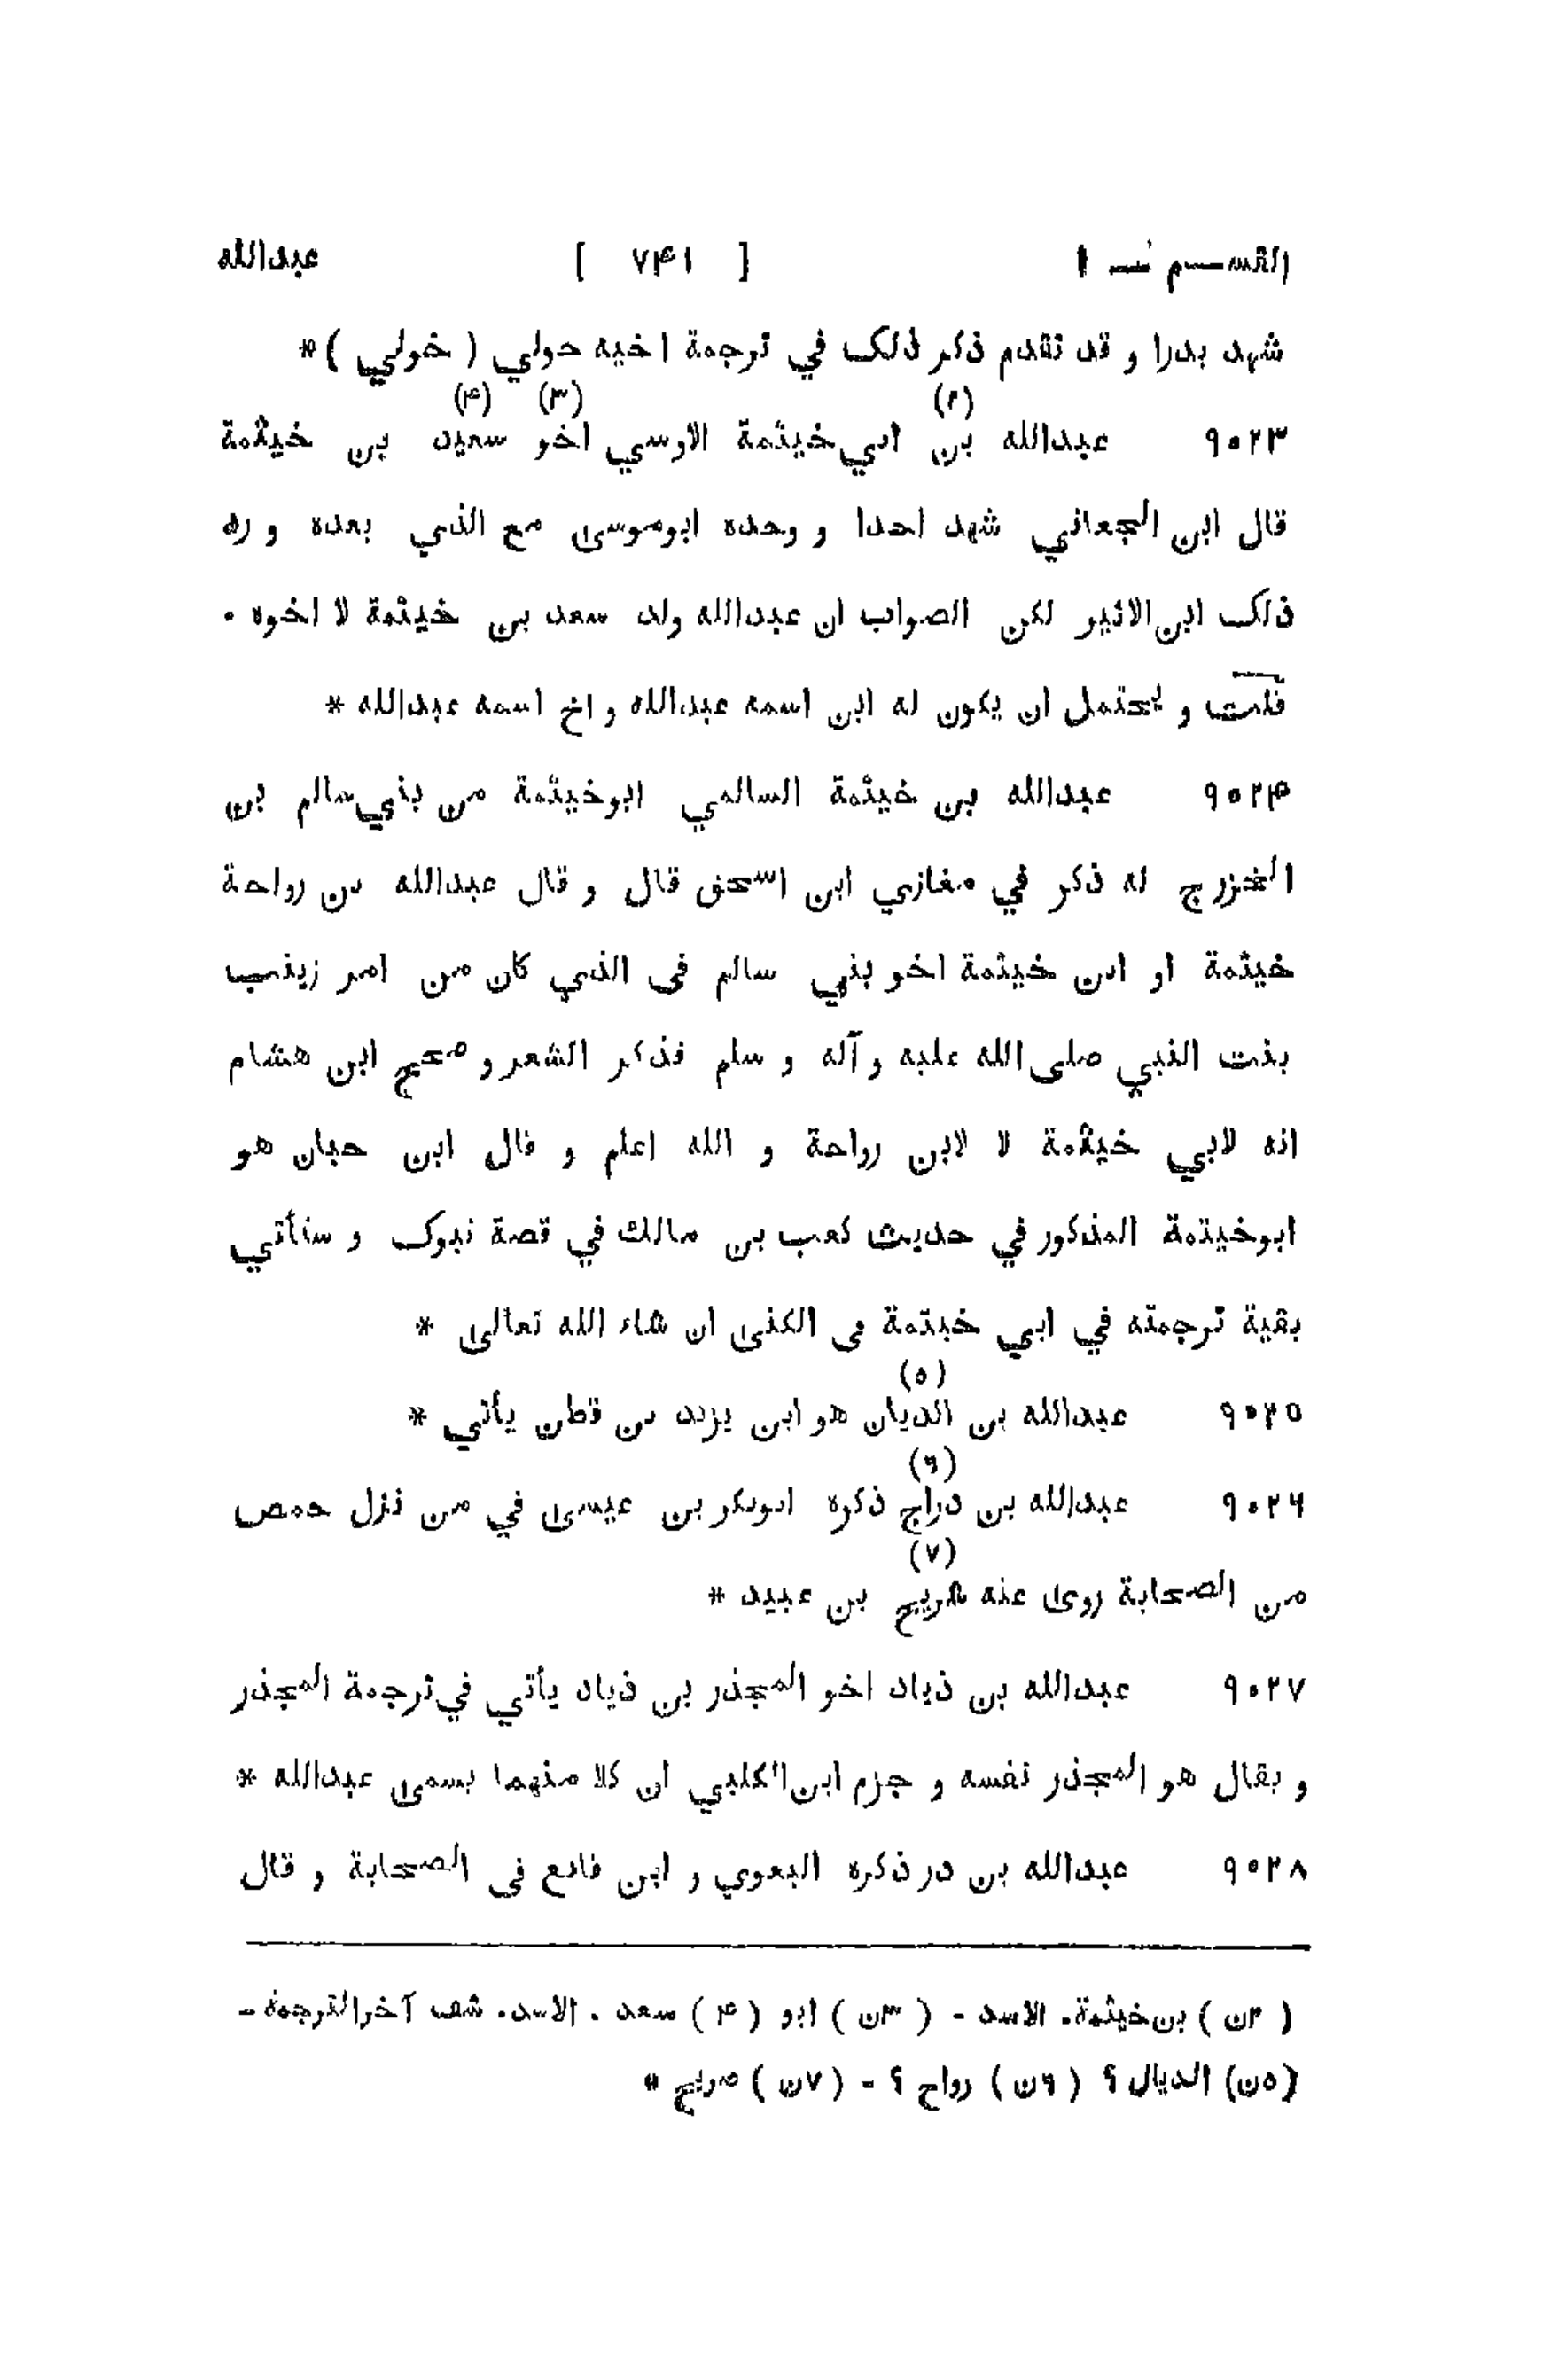 القسم ١ [ ٧۴١ ] عبدالله
شهد بدرا و قد تقدم ذكر ذلك في ترجمة اخيه حولي ( خولي ) *
(٢) (٣) (۴)
٩٠٢٣ عبدالله بن ابي خيثمة الاوسي اخو سعيد بن خيثمة
قال ابن الجعابي شهد احدا و وحده ابوموسى مع الذي بعده و رد
ذلك ابن الاثير لكن الصواب ان عبدالله ولد سعد بن خيثمة لا اخوه ٠
قلت و يحتمل ان يكون له ابن اسمه عبدالله و اخ اسمه عبدالله *
٩٠٢۴ عبدالله بن خيثمة السالمي ابوخيثمة من بني سالم بن
الخزرج له ذكر في مغازي ابن اسحق قال و قال عبدالله بن رواحة
خيثمة او ابن خيثمة اخو بني سالم فى الذي كان من امر زينب
بنت النبي صلى الله عليه و آله و سلم فذكر الشعر و صحح ابن هشام
انه لابي خيثمة لا لابن رواحة و الله اعلم و قال ابن حبان هو
ابوخيثمة المذكور في حديث كعب بن مالك في قصة تبوك و ستأتي
بقية ترجمته في ابي خيثمة فى الكنى ان شاء الله تعالى *
(٥)
٩٠٢٥ عبدالله بن الديان هو ابن يزيد بن قطن يأتي *
(٦)
٩٠٢٦ عبدالله بن دراج ذكره ابوبكر بن عيسى في من نزل حمص
(٧)
من الصحابة روى عنه شريح بن عبيد *
٩٠٢٧ عبدالله بن ذياد اخو المجذر بن ذياد يأتي في ترجمة المجذر
و يقال هو المجذر نفسه و جزم ابن الكلبي ان كلا منهما يسمى عبدالله *
٩٠٢٨ عبدالله بن در ذكره البغوي و ابن قانع فى الصحابة و قال
( ٢ن ) بن خيثمة. الاسد - ( ٣ن ) ابو ( ۴ ) سعد . الاسد. شف آخر الترجمة -
(٥ن) الديال ؟ ( ٦ن ) رواح ؟ - ( ٧ن ) صريح *